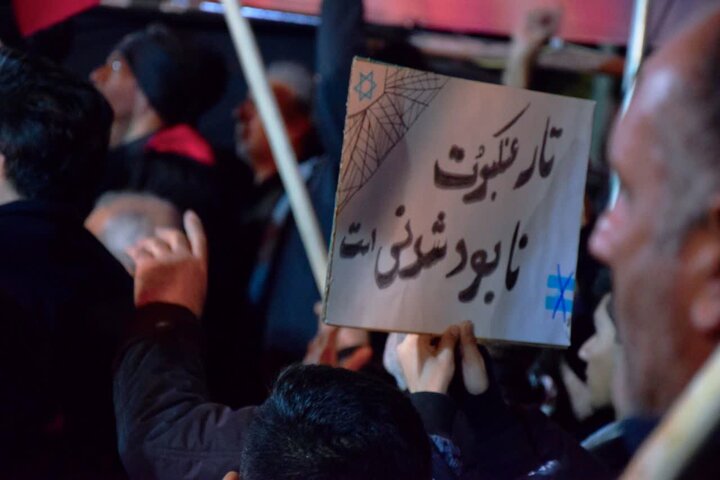 تار عنکبوت
نابود شدنی است